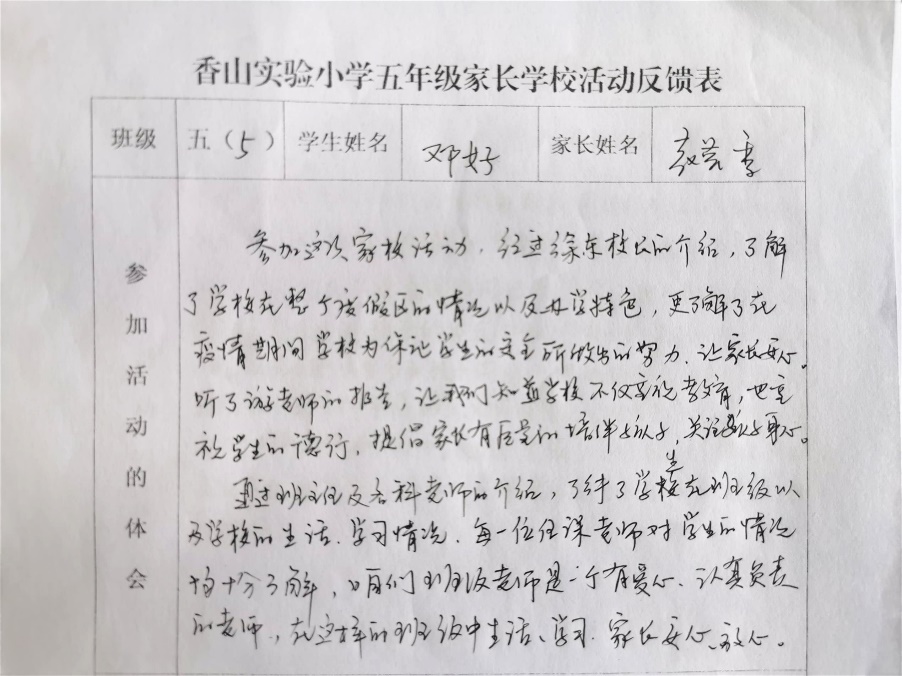 香山实验小学五年级家长学校活动反馈表
班级 五（5） 学生姓名 邓好 家长姓名 季
参加活动的体会
参加这次家校活动，经过徐东校长的介绍，了解
了学校在整个度假区的情况以及办学特色，更了解了在
疫情期间学校为保证学生的安全所做出的努力，让家长安心。
听了游老师的报告，让我们知道学校不仅重视教育，也重
视学生的德行，提倡家长有质量的陪伴孩子，关注孩子身心。
通过班主任及各科老师的介绍，了解了学生在班级以
及学校的生活、学习情况，每一位任课老师对学生的情况
均十分了解，咱们班级老师是一个有爱心、认真负责
的老师，在这样的班级中生活、学习，家长安心、放心。